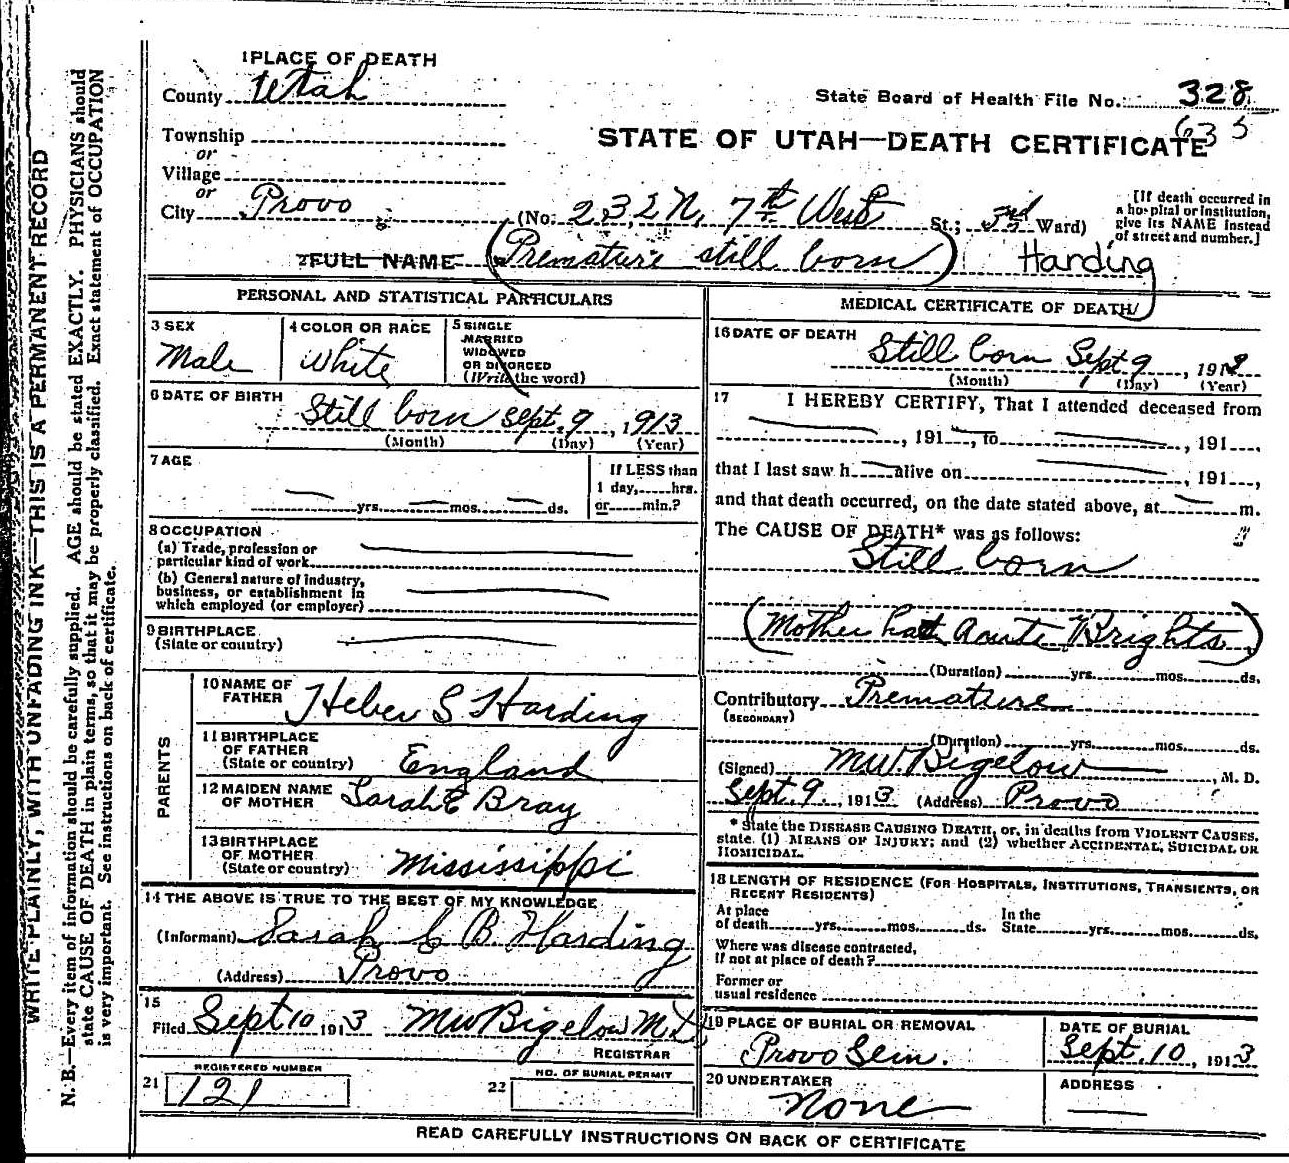 WRITE PLAINLY, WITH UNFADING INK—THIS IS A PERMANENT RECORD
N. B.—Every item of information should be carefully supplied. AGE should be stated EXACTLY. PHYSICIANS should
state CAUSE OF DEATH in plain terms, so that it may be properly classified. Exact statement of OCCUPATION
is very important. See instructions on back of certificate.
1 PLACE OF DEATH
County Utah
State Board of Health File No. 328
635
Township
or
Village
or
City Provo
STATE OF UTAH—DEATH CERTIFICATE
(No. 232 N. 7th West St.; 3rd Ward)
[If death occurred in
a hospital or institution,
give its NAME instead
of street and number.]
2 FULL NAME (Premature still born) Harding
PERSONAL AND STATISTICAL PARTICULARS
3 SEX
Male
4 COLOR OR RACE
White
5 SINGLE
MARRIED
WIDOWED
OR DIVORCED
(Write the word)
6 DATE OF BIRTH
Still born Sept. 9, 1913
(Month) (Day) (Year)
7 AGE
yrs. mos. ds.
If LESS than
1 day, hrs.
or min.?
8 OCCUPATION
(a) Trade, profession or
particular kind of work
(b) General nature of industry,
business, or establishment in
which employed (or employer)
9 BIRTHPLACE
(State or country)
PARENTS
10 NAME OF
FATHER Heber S Harding
11 BIRTHPLACE
OF FATHER
(State or country) England
12 MAIDEN NAME
OF MOTHER Sarah E Bray
13 BIRTHPLACE
OF MOTHER
(State or country) Mississippi
14 THE ABOVE IS TRUE TO THE BEST OF MY KNOWLEDGE
(Informant) Sarah E B. Harding
(Address) Provo
15
Filed Sept 10 1913 MW Bigelow M D
REGISTRAR
21 REGISTERED NUMBER
121
22 NO. OF BURIAL PERMIT
MEDICAL CERTIFICATE OF DEATH
16 DATE OF DEATH
Still born Sept 9, 1913
(Month) (Day) (Year)
17 I HEREBY CERTIFY, That I attended deceased from
, 191 , to , 191 ,
that I last saw h alive on , 191 ,
and that death occurred, on the date stated above, at m.
The CAUSE OF DEATH* was as follows:
Still born
(Mother had Acute Brights)
(Duration) yrs. mos. ds.
Contributory Premature
(SECONDARY)
(Duration) yrs. mos. ds.
(Signed) M.W. Bigelow, M. D.
Sept. 9, 1913 (Address) Provo
* State the DISEASE CAUSING DEATH, or, in deaths from VIOLENT CAUSES,
state (1) MEANS OF INJURY; and (2) whether ACCIDENTAL, SUICIDAL OR
HOMICIDAL.
18 LENGTH OF RESIDENCE (FOR HOSPITALS, INSTITUTIONS, TRANSIENTS, OR
RECENT RESIDENTS)
At place
of death yrs. mos. ds.
In the
State yrs. mos. ds.
Where was disease contracted,
if not at place of death?
Former or
usual residence
19 PLACE OF BURIAL OR REMOVAL
Provo Cem.
DATE OF BURIAL
Sept. 10, 1913
20 UNDERTAKER
None
ADDRESS
READ CAREFULLY INSTRUCTIONS ON BACK OF CERTIFICATE